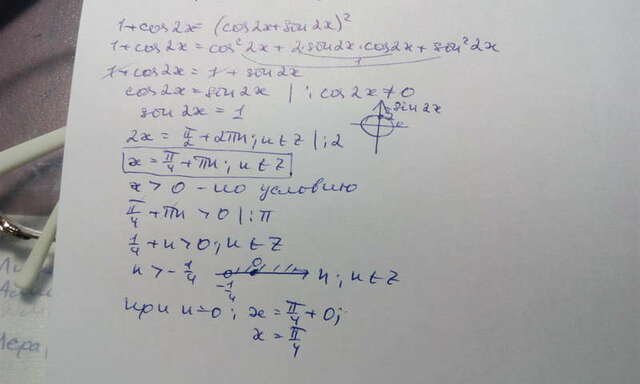 1+cos2x = (cos2x+sin2x)²
1+cos2x = cos²2x + 2sin2x·cos2x + sin²2x
1
1+cos2x = 1 + sin2x
cos2x = sin2x | : cos2x ≠ 0
sin2x = 1
sin2x
2x = π/2 + 2πn; n ∈ Z | :2
x = π/4 + πn; n ∈ Z
x > 0 - по условию
π/4 + πn > 0 | : π
1/4 + n > 0; n ∈ Z
n > -1/4
0
-1/4
n; n ∈ Z
при n=0; x = π/4 + 0;
x = π/4